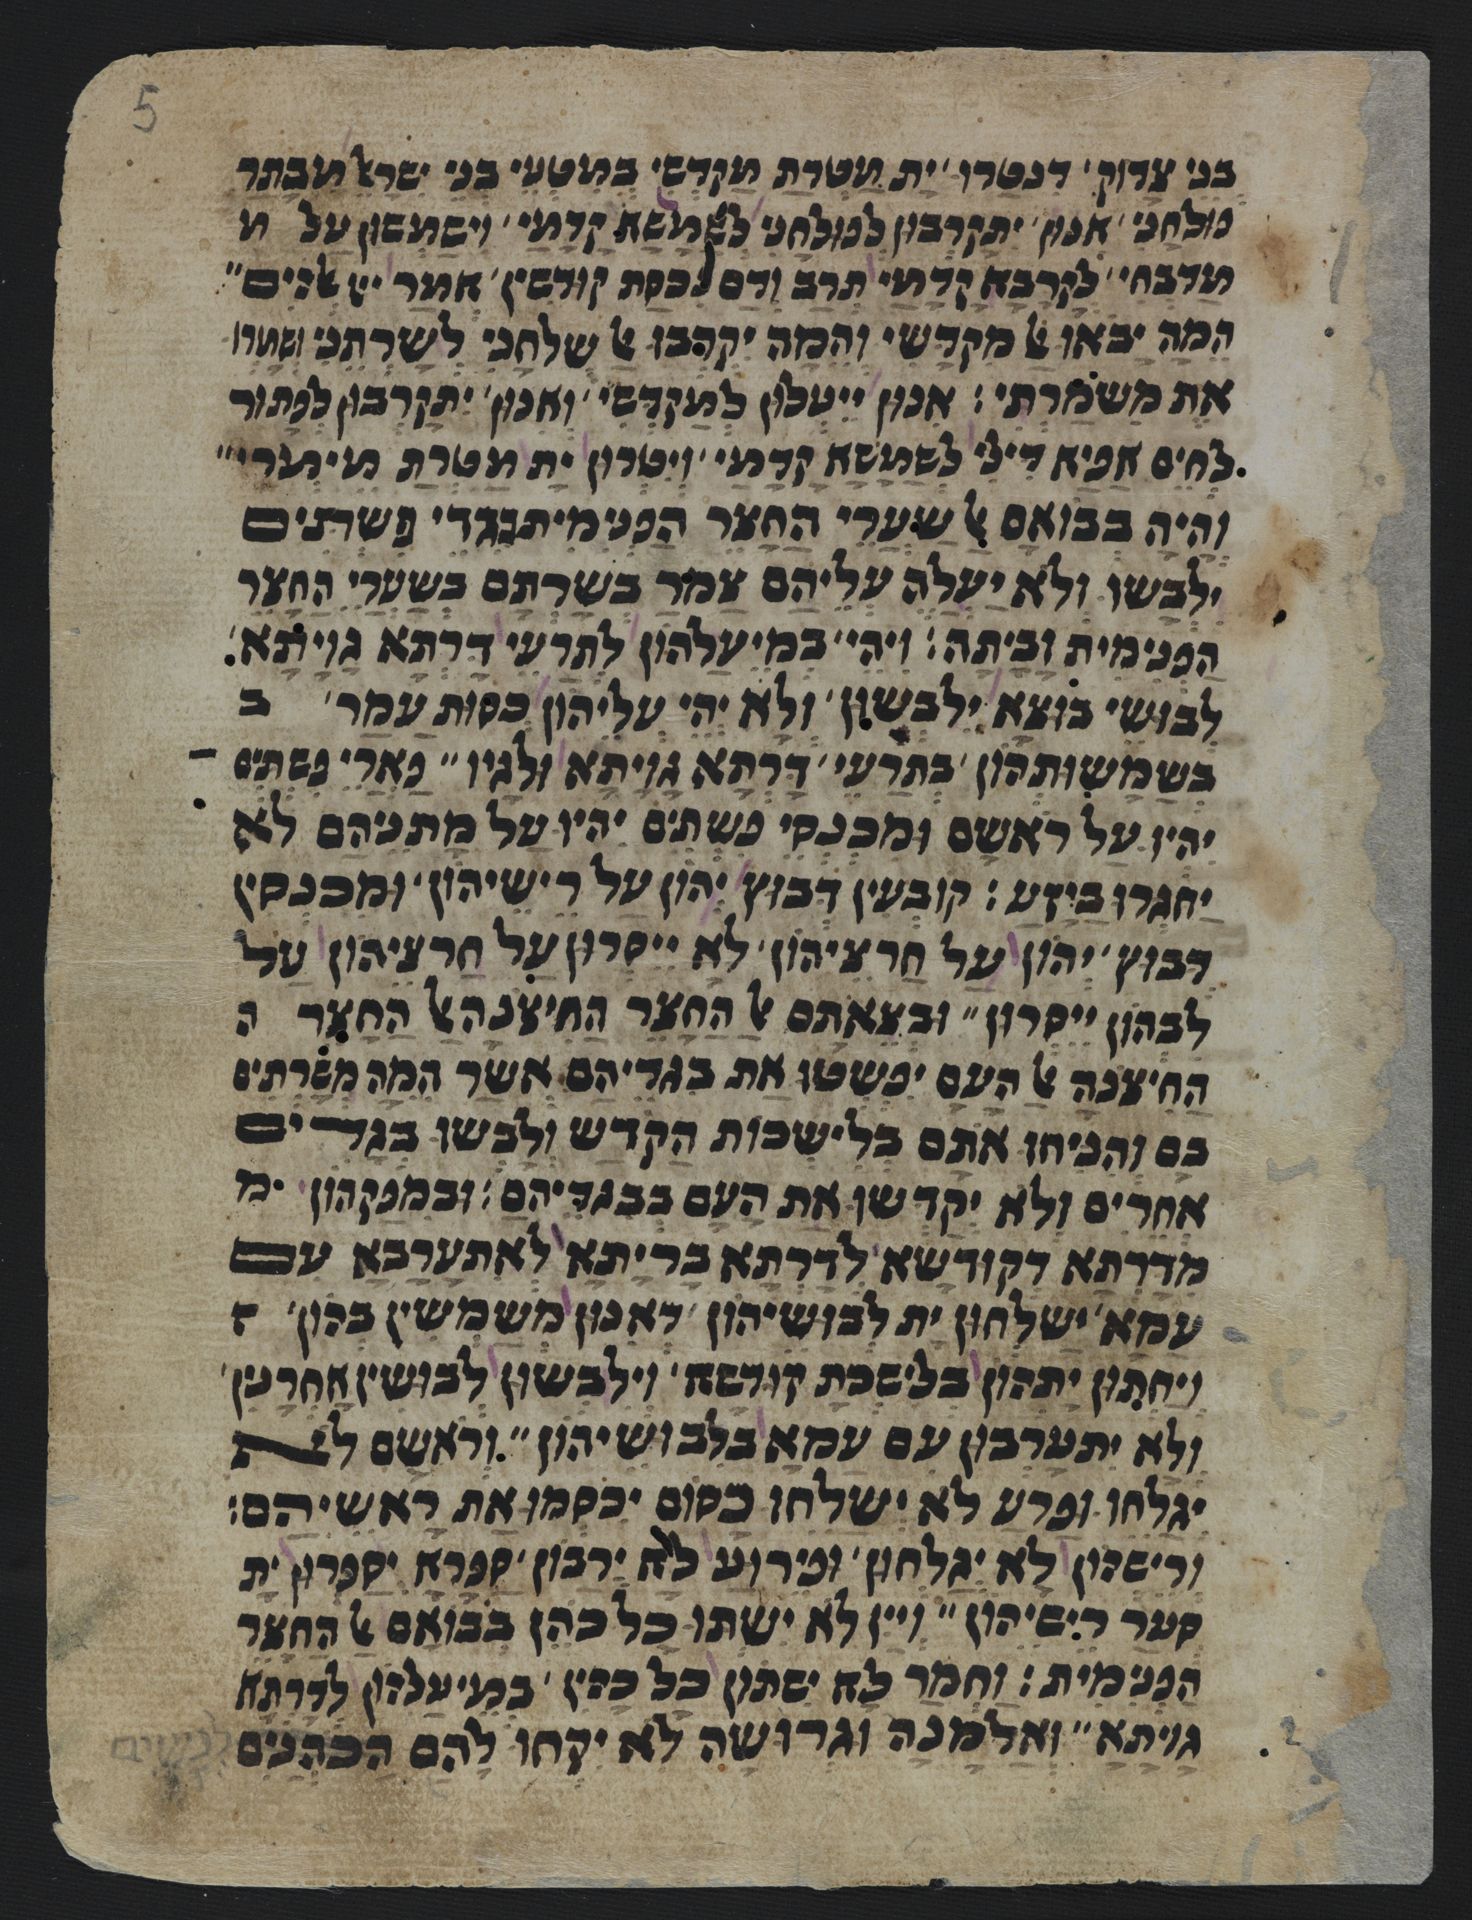 5
בני צדוק׳ דנטרו ׳ית מטרת מקדשי במטעי בני ישראל מבתר
פולחני ׳אנון׳ יתקרבון לפולחני לשמשא קדמי׳ וישמשון על מ
מדבחי׳ לקרבא קדמי תרב ודם נכסת קודשין׳ אמר ייי אלהים״
המה יבאו אל מקדשי והמה יקרבו אל שלחני לשרתני ושמרו
את משמרתי: אנון ייעלון למקדשי׳ ואנון׳ יתקרבון לפתור
לחים אפיא דילי לשמשא קדמי׳ ויטרון ית מטרת מימרי״
והיה בבואם אל שערי החצר הפנימית בגדי פשתים
ילבשו ולא יעלה עליהם צמר בשרתם בשערי החצר
הפנימית וביתה: ויהי׳ במיעלהון לתרעי דרתא גויתא׳
לבושי בוצא ילבשון׳ ולא יהי עליהון כסות עמר׳ ב
בשמשותהון ׳בתרעי׳ דרתא גויתא ולגיו״ פארי פשתים
יהיו על ראשם ומכנסי פשתים יהיו על מתניהם לא
יחגרו ביזע: קובעין דבוץ יהון על רישיהון׳ ומכנסין
דבוץ׳ יהון על חרציהון׳ לא ייסרון על חרציהון על
לבהון ייסרון״ ובצאתם אל החצר החיצנה אל החצר ה
החיצנה אל העם יפשטו את בגדיהם אשר המה משרתים
בם והניחו אתם בלישכות הקדש ולבשו בגדים
אחרים ולא יקדשו את העם בבגדיהם: ובמפקהון מ
מדרתא דקודשא לדרתא בריתא לאתערבא עם
עמא׳ ישלחון ית לבושיהון ׳דאנון משמשין בהון׳ ז
ויחתון יתהון בלישכת קודשא׳ וילבשון לבושין אחרנין׳
ולא יתערבון עם עמא בלבושיהון״ וראשם לא
יגלחו ופרע לא ישלחו כסום יכסמו את ראשיהם:
ורישהון לא יגלחון׳ ופירוע לא ירבון׳ ספרא יספרון ית
סער רישיהון״ ויין לא ישתו כל כהן בבואם אל החצר
הפנימית: וחמר לא ישתון כל כהין׳ במיעלהון לדרתא
גויתא״ ואלמנה וגרושה לא יקחו להם הכהנים
לנשים